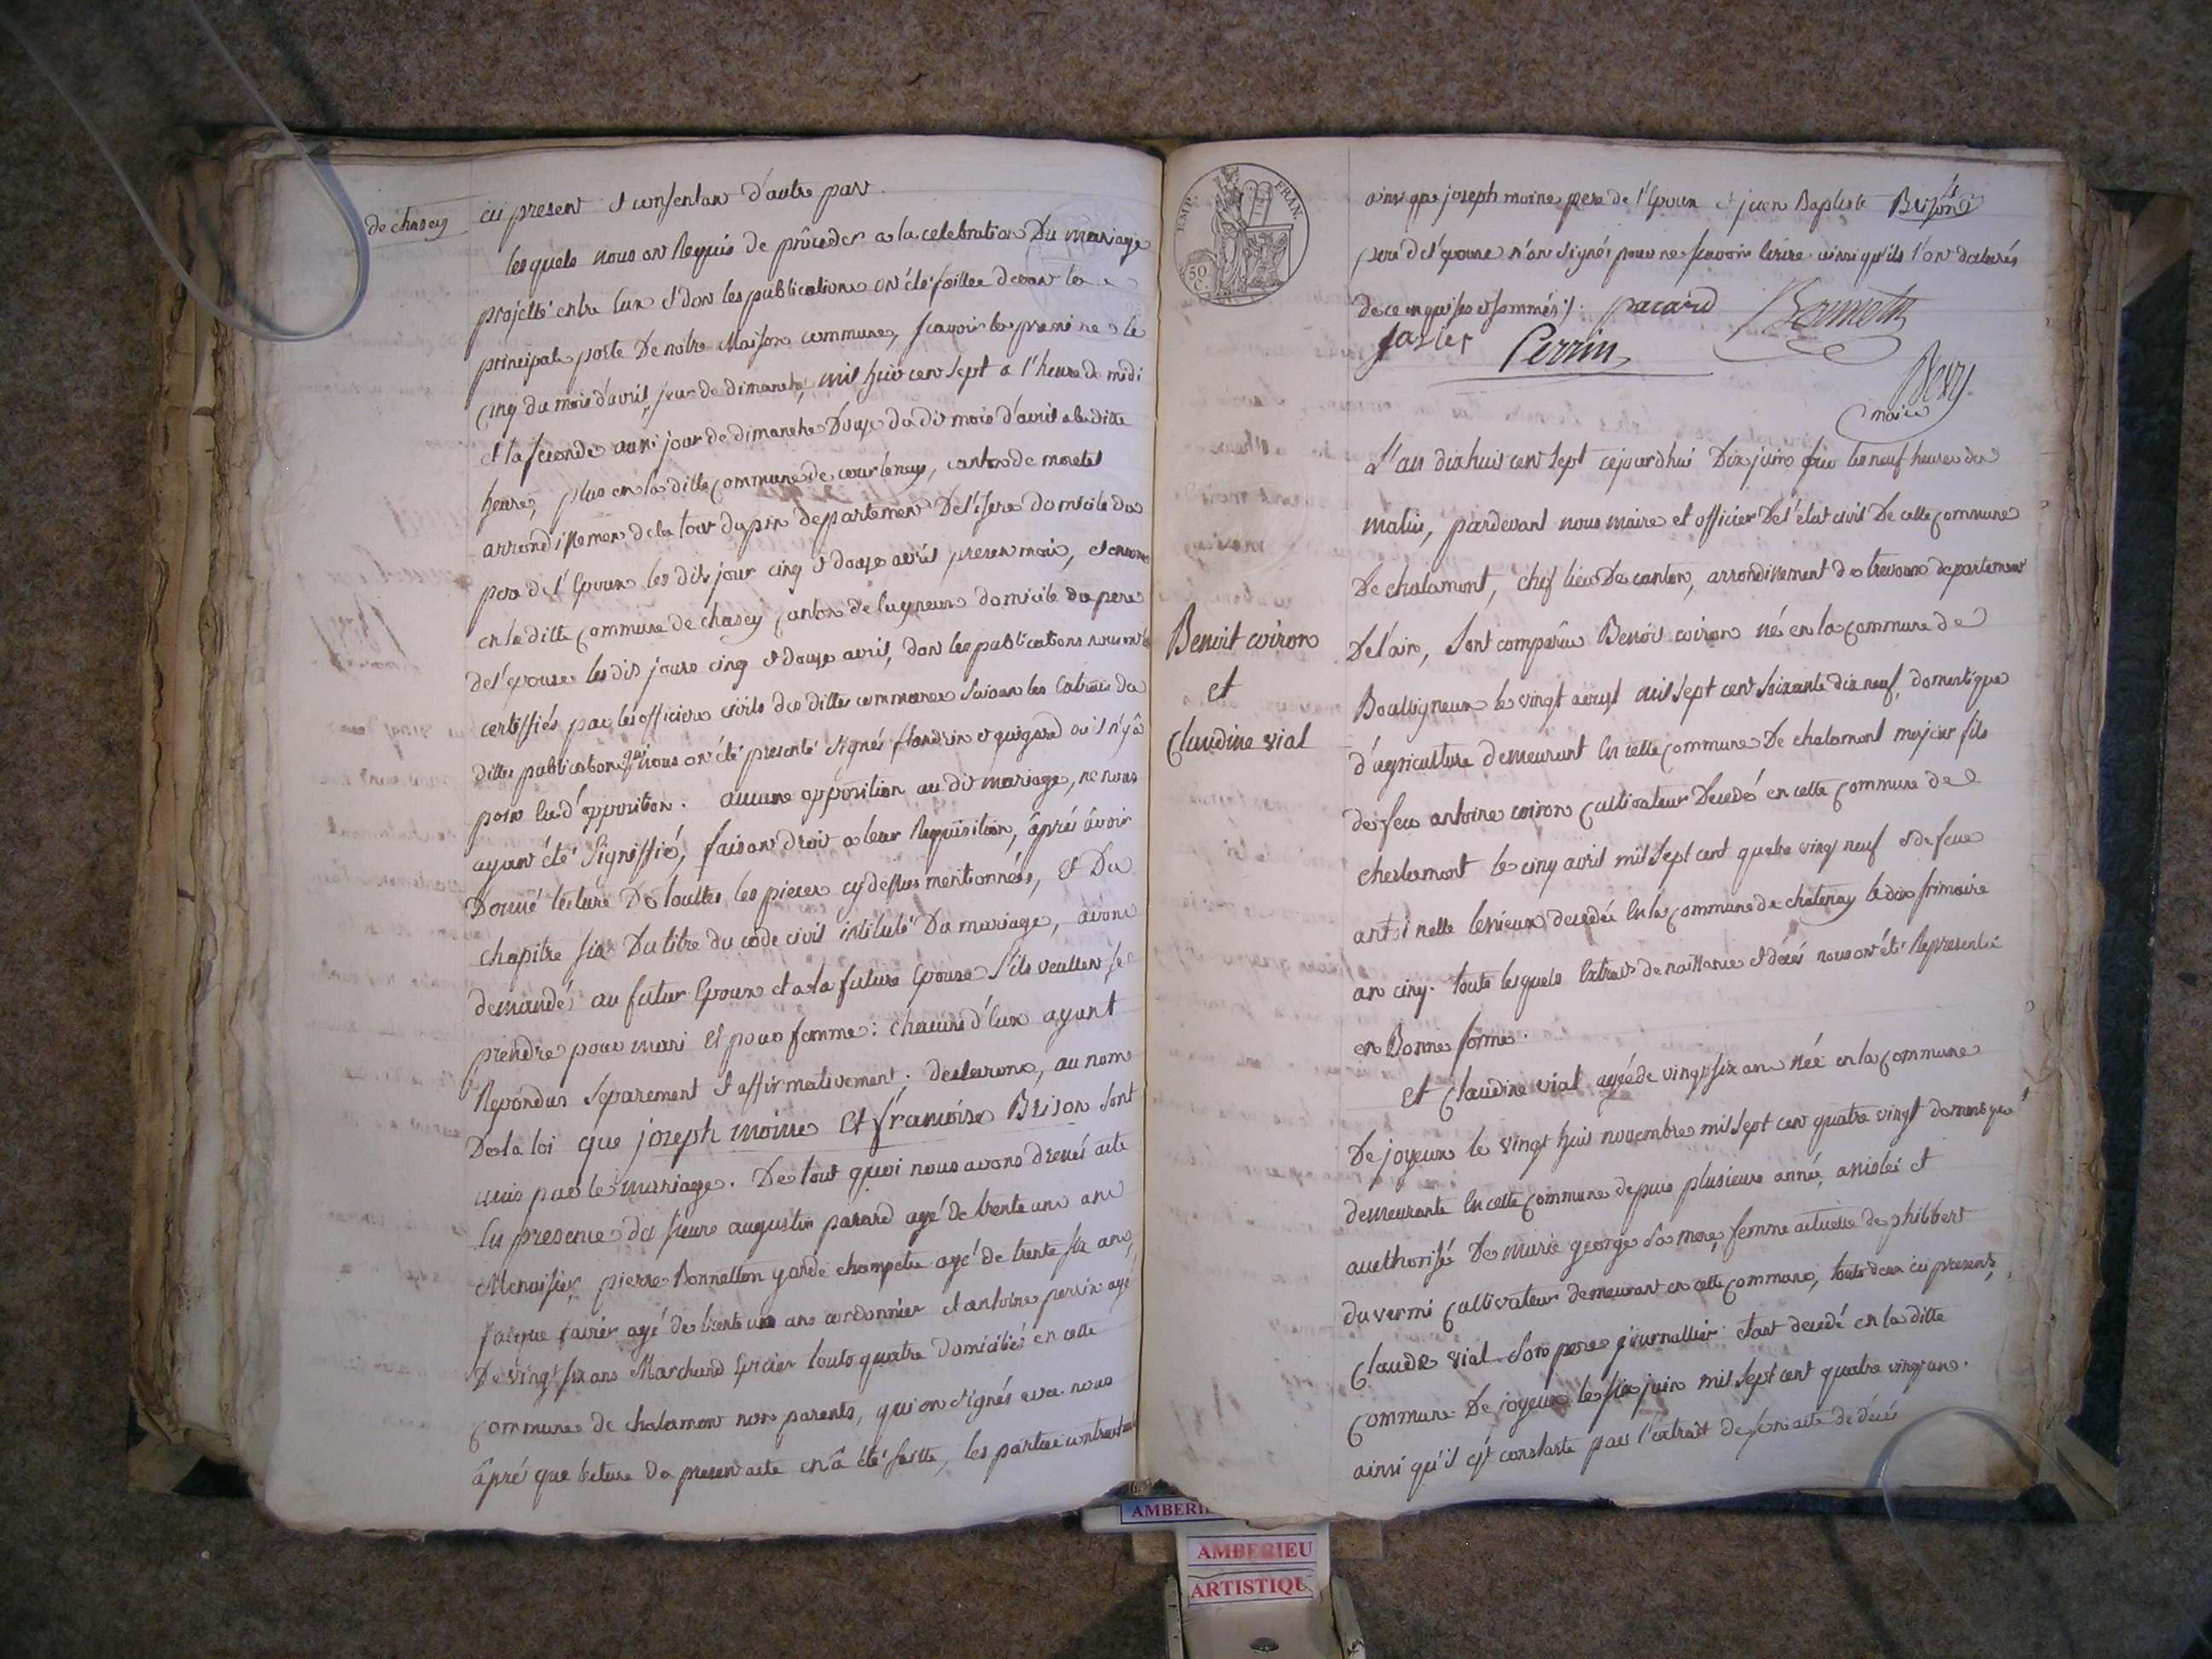 de chasey
ici present et consentant d'autre part.
lesquels nous ont Requis de procéder a la celebration Du mariage
projetté entre Eux et dont les publications ont été faittes devant la
principale porte De notre Maison commune, scavoir la premiere le
cinq du mois d'avril, jour de dimanche, mil huit cent sept a l'heure de midi
et la seconde aussi jour de dimanche Douze du dit mois d'avril a la ditte
heure, plus en la ditte commune de courtenay, canton de morestel
arrondissement de la tour du pin departement De l'isere domicile du
pere de l'Epoux les dits jour cinq et douze avril present mois, et encore
en la ditte commune de chasey canton de lagneux domicile du pere
de l'epouse les dits jours cinq et douze avril, dont les publications nous ont été
certiffiés par les officiers civils des dittes communes suivant les Extraits du
dittes publications qui nous ont été presenté signés flandrin et quigard où il n'y a
point eu d'opposition. aucune opposition au dit mariage, ne nous
ayant été Signiffié, faisant droit a leur Requisition, âprés âvoir
Donné lecture De touttes les pieces cy dessus mentionnées, et Du
chapitre six Du titre du code civil intitulé Du mariage, avons
demandé au futur Epoux et a la future Epouse s'ils veullent se
prendre pour mari et pour femme: chacun d'Eux ayant
Repondus Separement et affirmativement; declarons, au nom
De la loi que joseph moine Et francoise Brison sont
unis par le mariage. De tout quoi nous avons dressé acte
En presence des sieurs augustin pacard agé de trente un ans
Menuisier, pierre Bonnetton garde champetre agé de trente six ans,
jacque favier agé de trente un ans cordonnier et antoine perrin agé
De vingt six ans Marchand Epicier touts quatre domiciliés en cette
commune de chalamont non parents, qui ont signés avec nous
âprés que lecture du present acte en â été faitte, les parties contractantes
EMP. FRAN.
50 C.
ainsi que joseph moine pere de l'Epoux et jean Baptiste Brison
pere de l'epouse n'ont signés pour ne scavoir Ecrire ainsi qu'ils l'ont déclarés
de ce enquises et sommés /. pacard Bonneton
favier Perrin
maire
Benoit coiron
et
claudine vial
L'an dix huit cent sept cejourd'hui Dix juin sur les neuf heures du
matin, pardevant nous maire et officier De l'état civil De cette commune
De chalamont, chef lieu De canton, arrondissement de trevoux departement
De l'ain, sont comparus Benoit coiron né en la commune de
Bouligneux le vingt aoust mil sept cent soixante dix neuf, domestique
d'agriculture demeurant En cette commune De chalamont majeur fils
de feu antoine coiron cultivateur Decédé en cette commune de
chalamont le cinq avril mil sept cent quatre vingt neuf et de feue
antoinette lesvieux decedée En la commune de chatenay le dix frimaire
an cinq. touts lesquels Extraits de naissance et décés nous ont été Representé
en Bonne forme.
Et claudine vial agée de vingt six ans née en la commune
De joyeux le vingt huit novembre mil sept cent quatre vingt domestique
demeurante En cette commune depuis plusieurs année, assistée et
authorisé De marie george sa mere, femme actuelle de philibert
duvermi cultivateur demeurant en cette commune, touts deux ici presents,
claude vial son pere journallier etant decedé en la ditte
commune De joyeux le six juin mil sept cent quatre vingt un.
ainsi qu'il est constaté par l'extrait de son acte de decés
AMBERIEU
AMBERIEU
ARTISTIQUE